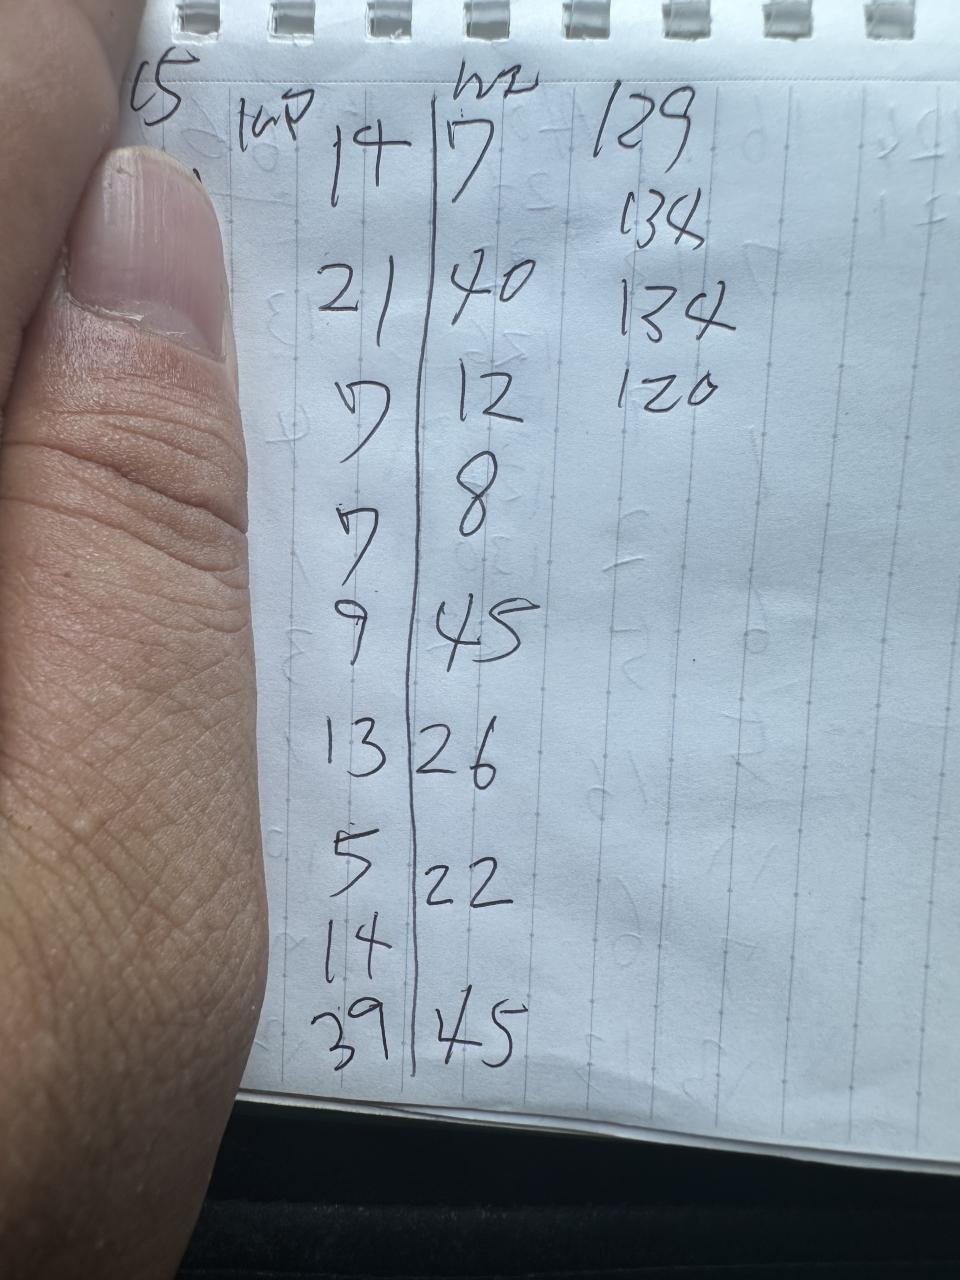 15
14 7 129
134
21 40 134
7 12 120
7 8
9 45
13 26
5 22
14
39 45